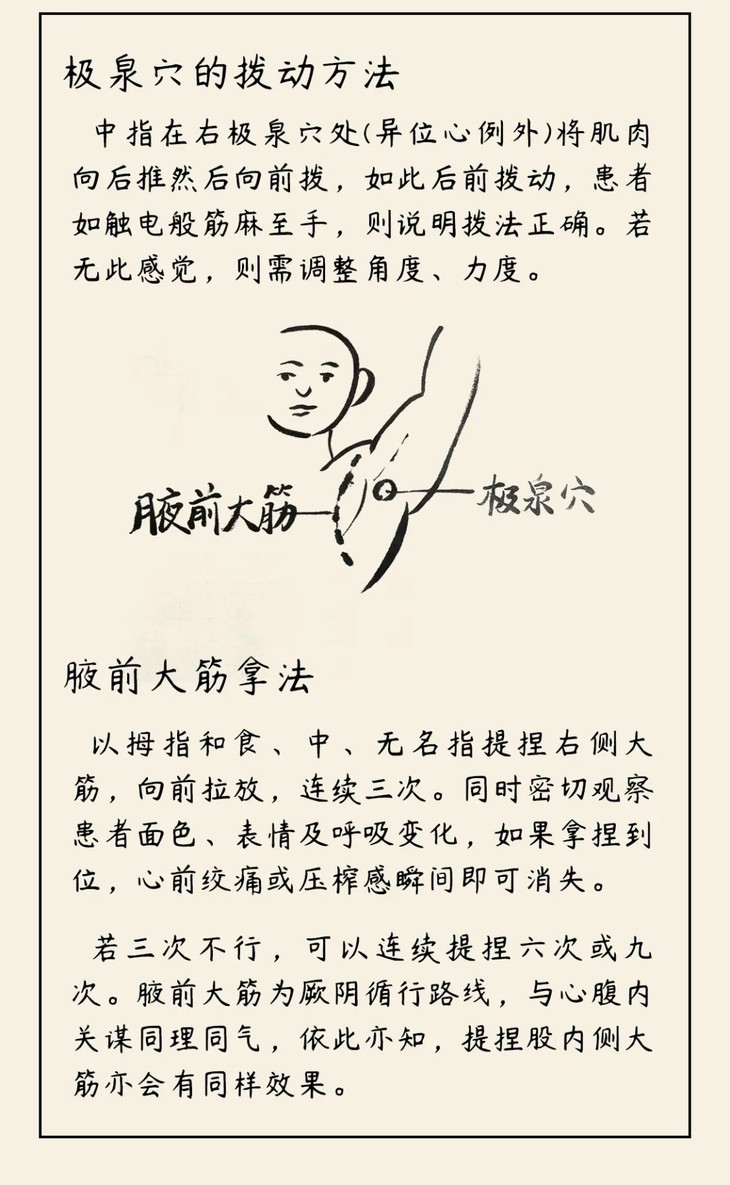 极泉穴的拨动方法
中指在右极泉穴处(异位心例外)将肌肉
向后推然后向前拨，如此后前拨动，患者
如触电般筋麻至手，则说明拨法正确。若
无此感觉，则需调整角度、力度。
腋前大筋
极泉穴
腋前大筋拿法
以拇指和食、中、无名指提捏右侧大
筋，向前拉放，连续三次。同时密切观察
患者面色、表情及呼吸变化，如果拿捏到
位，心前绞痛或压榨感瞬间即可消失。
若三次不行，可以连续提捏六次或九
次。腋前大筋为厥阴循行路线，与心腹内
关谋同理同气，依此亦知，提捏股内侧大
筋亦会有同样效果。